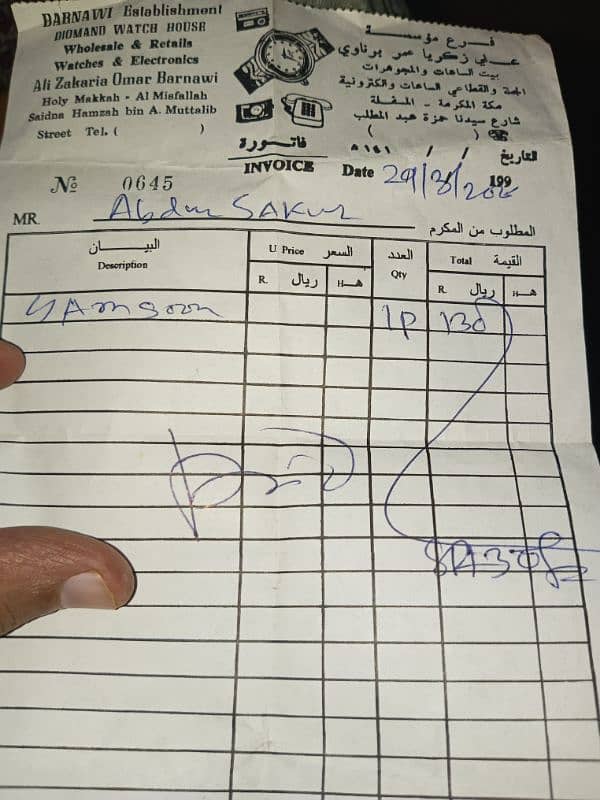 BARNAWI Establishment
DIOMAND WATCH HOUSE
Wholesale & Retails
Watches & Electronics
Ali Zakaria Omar Barnawi
Holy Makkah - Al Misfallah
Saidna Hamzah bin A. Muttalib
Street Tel. ( )
فرع مؤسسة
علي زكريا عمر برناوي
بيت الساعات والمجوهرات
الجملة والقطاعي الساعات والكترونية
مكة المكرمة - المسفلة
شارع سيدنا حمزة عبد المطلب
( )
فاتورة
INVOICE
التاريخ / / ١٤١ هـ
Date 29/3/ 199
№ 0645
MR. Abdur SAKUR المطلوب من المكرم
البيــــان
Description
U Price السعر
العدد
Qty
Total القيمة
R. ريال هـ H
R. ريال هـ H
1P 130